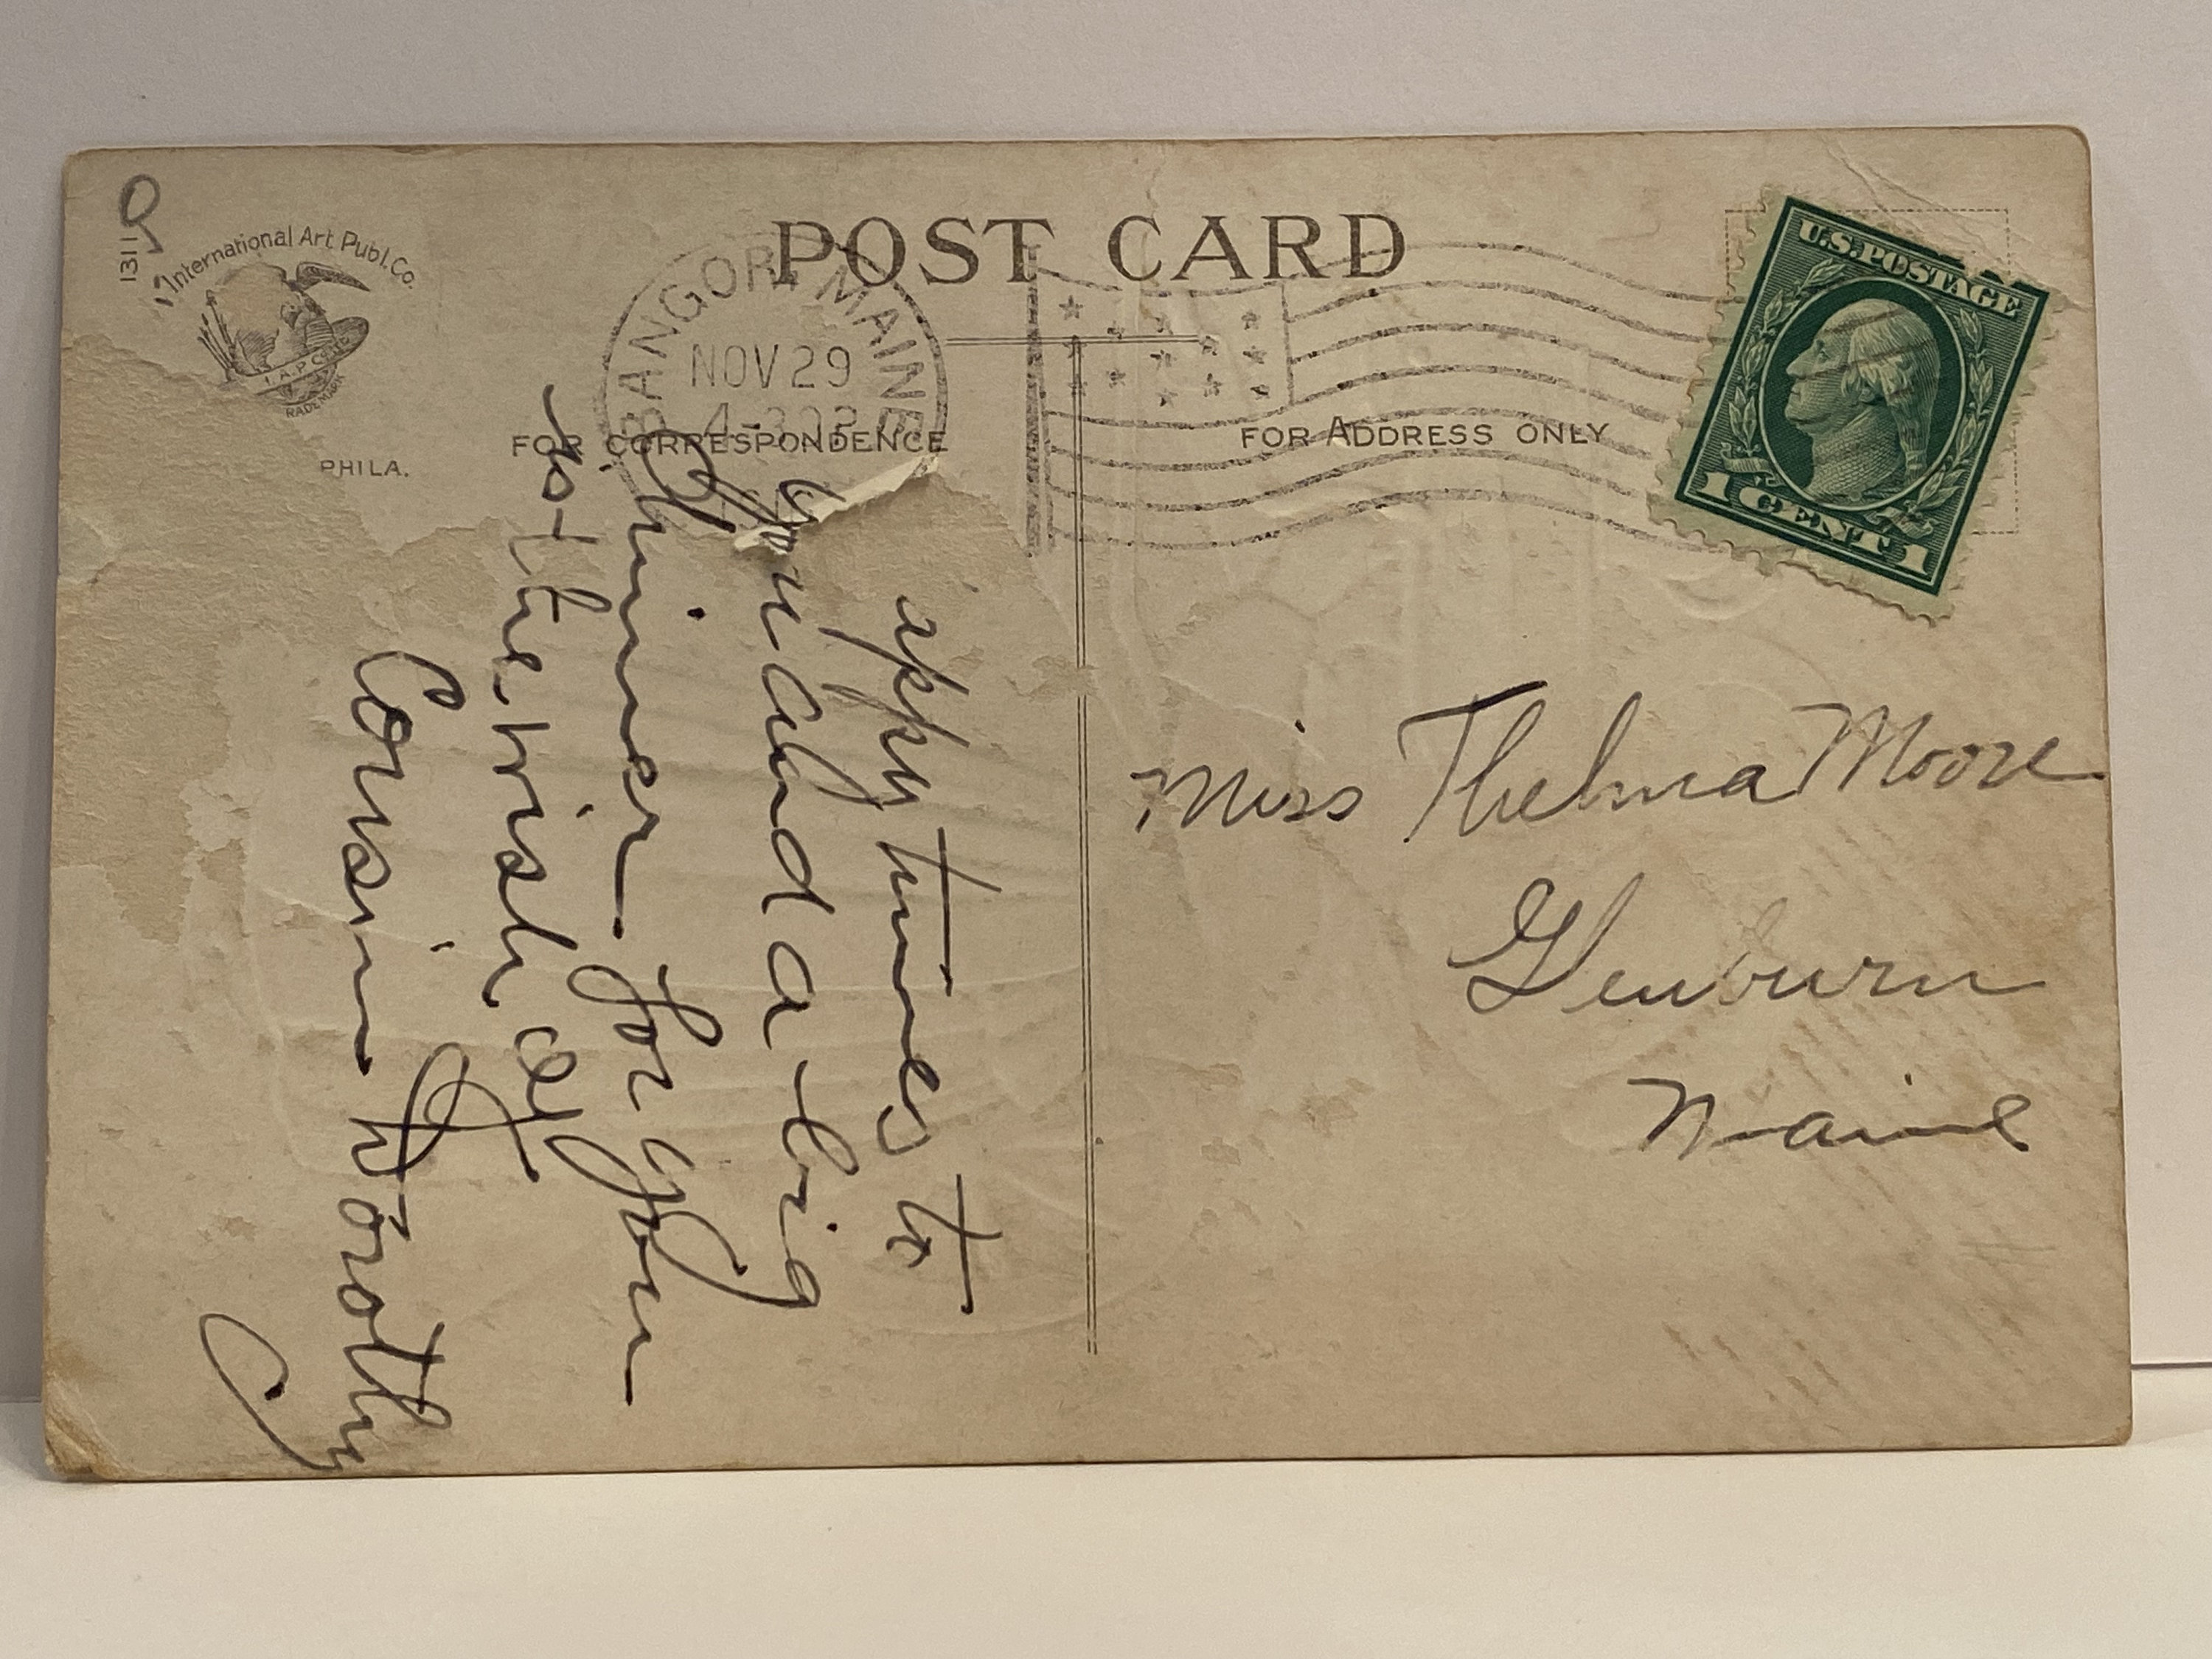 1311
International Art Publ. Co.
I.A.P.CO.
TRADEMARK
PHILA.
POST CARD
BANGOR, MAINE
NOV 29
FOR CORRESPONDENCE
FOR ADDRESS ONLY
U.S. POSTAGE
1 CENT 1
appy times to
you and a big
Dinner for you
is the wish of
Cousin Dorothy
Miss Thelma Moore
Glenburn
Maine